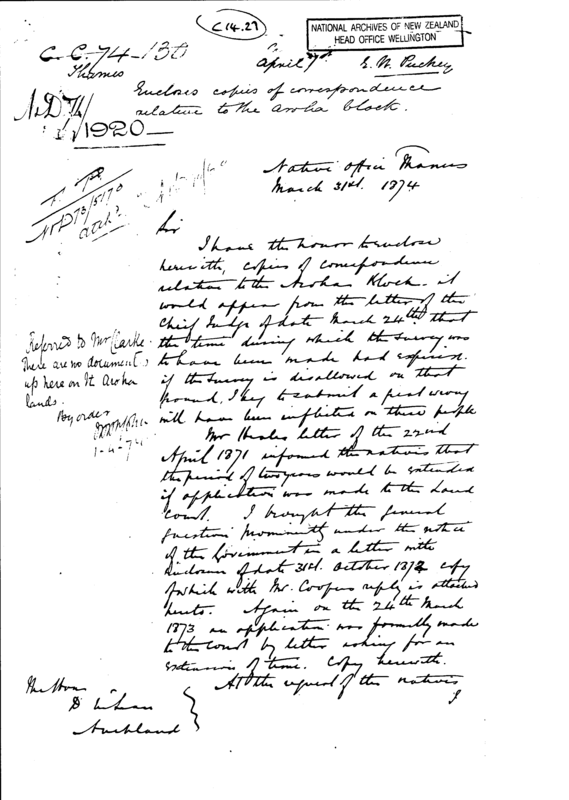 C 14.27
NATIONAL ARCHIVES OF NEW ZEALAND
HEAD OFFICE WELLINGTON
C. C. 74-130
Thames
April 7th
E. W. Puckey
Encloses copies of correspondence
relative to the Aroha block.
N&D 74/
1920
N&D 73/5170
attd?
Native Office Thames
March 31st. 1874
Sir
I have the honor to enclose
herewith, copies of correspondence
relative to the Aroha Block. it
would appear from the letter of the
Chief Judge of date March 24th that
the time during which the survey was
to have been made had expired.
if the survey is disallowed on that
ground, I beg to submit a great wrong
will have been inflicted on these people
Mr Heales letter of the 22nd
April 1871 informed the natives that
the period of two years would be extended
if application was made to the Land
Court. I brought the general
question prominently under the notice
of the Government in a letter with
enclosure of date 31st. October 1872 copy
of which with Mr. Coopers reply is attached
hereto. Again on the 24th March
1873 an application was formally made
to the Court by letter asking for an
extension of time. Copy herewith.
At the request of the natives
I
Referred to Mr Clarke
there are no documents
up here on Te Aroha
lands.
By order
1-4-74
The Hon
D McLean
Auckland